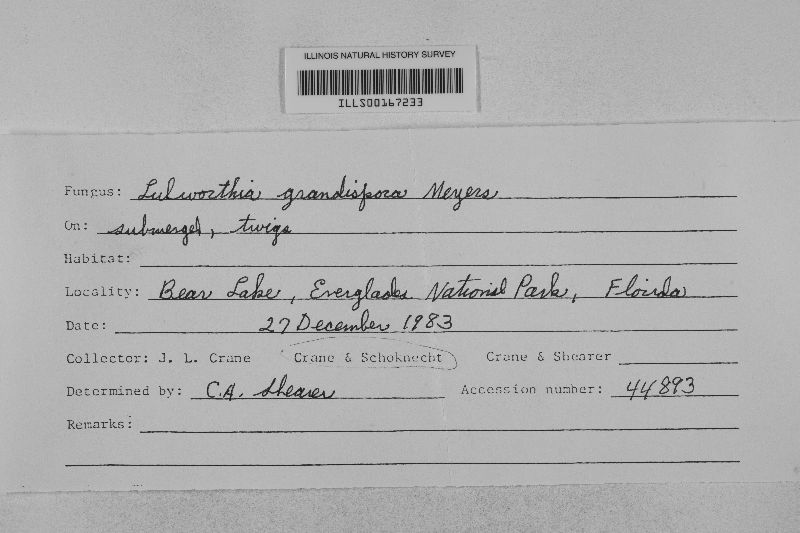 ILLINOIS NATURAL HISTORY SURVEY
ILLS00167233
Fungus: Lulworthia grandispora Meyers
On: submerged, twigs
Habitat:
Locality: Bear Lake, Everglades National Park, Florida
Date: 27 December 1983
Collector: J. L. Crane Crane & Schoknecht Crane & Shearer
Determined by: C.A. Shearer Accession number: 44893
Remarks: